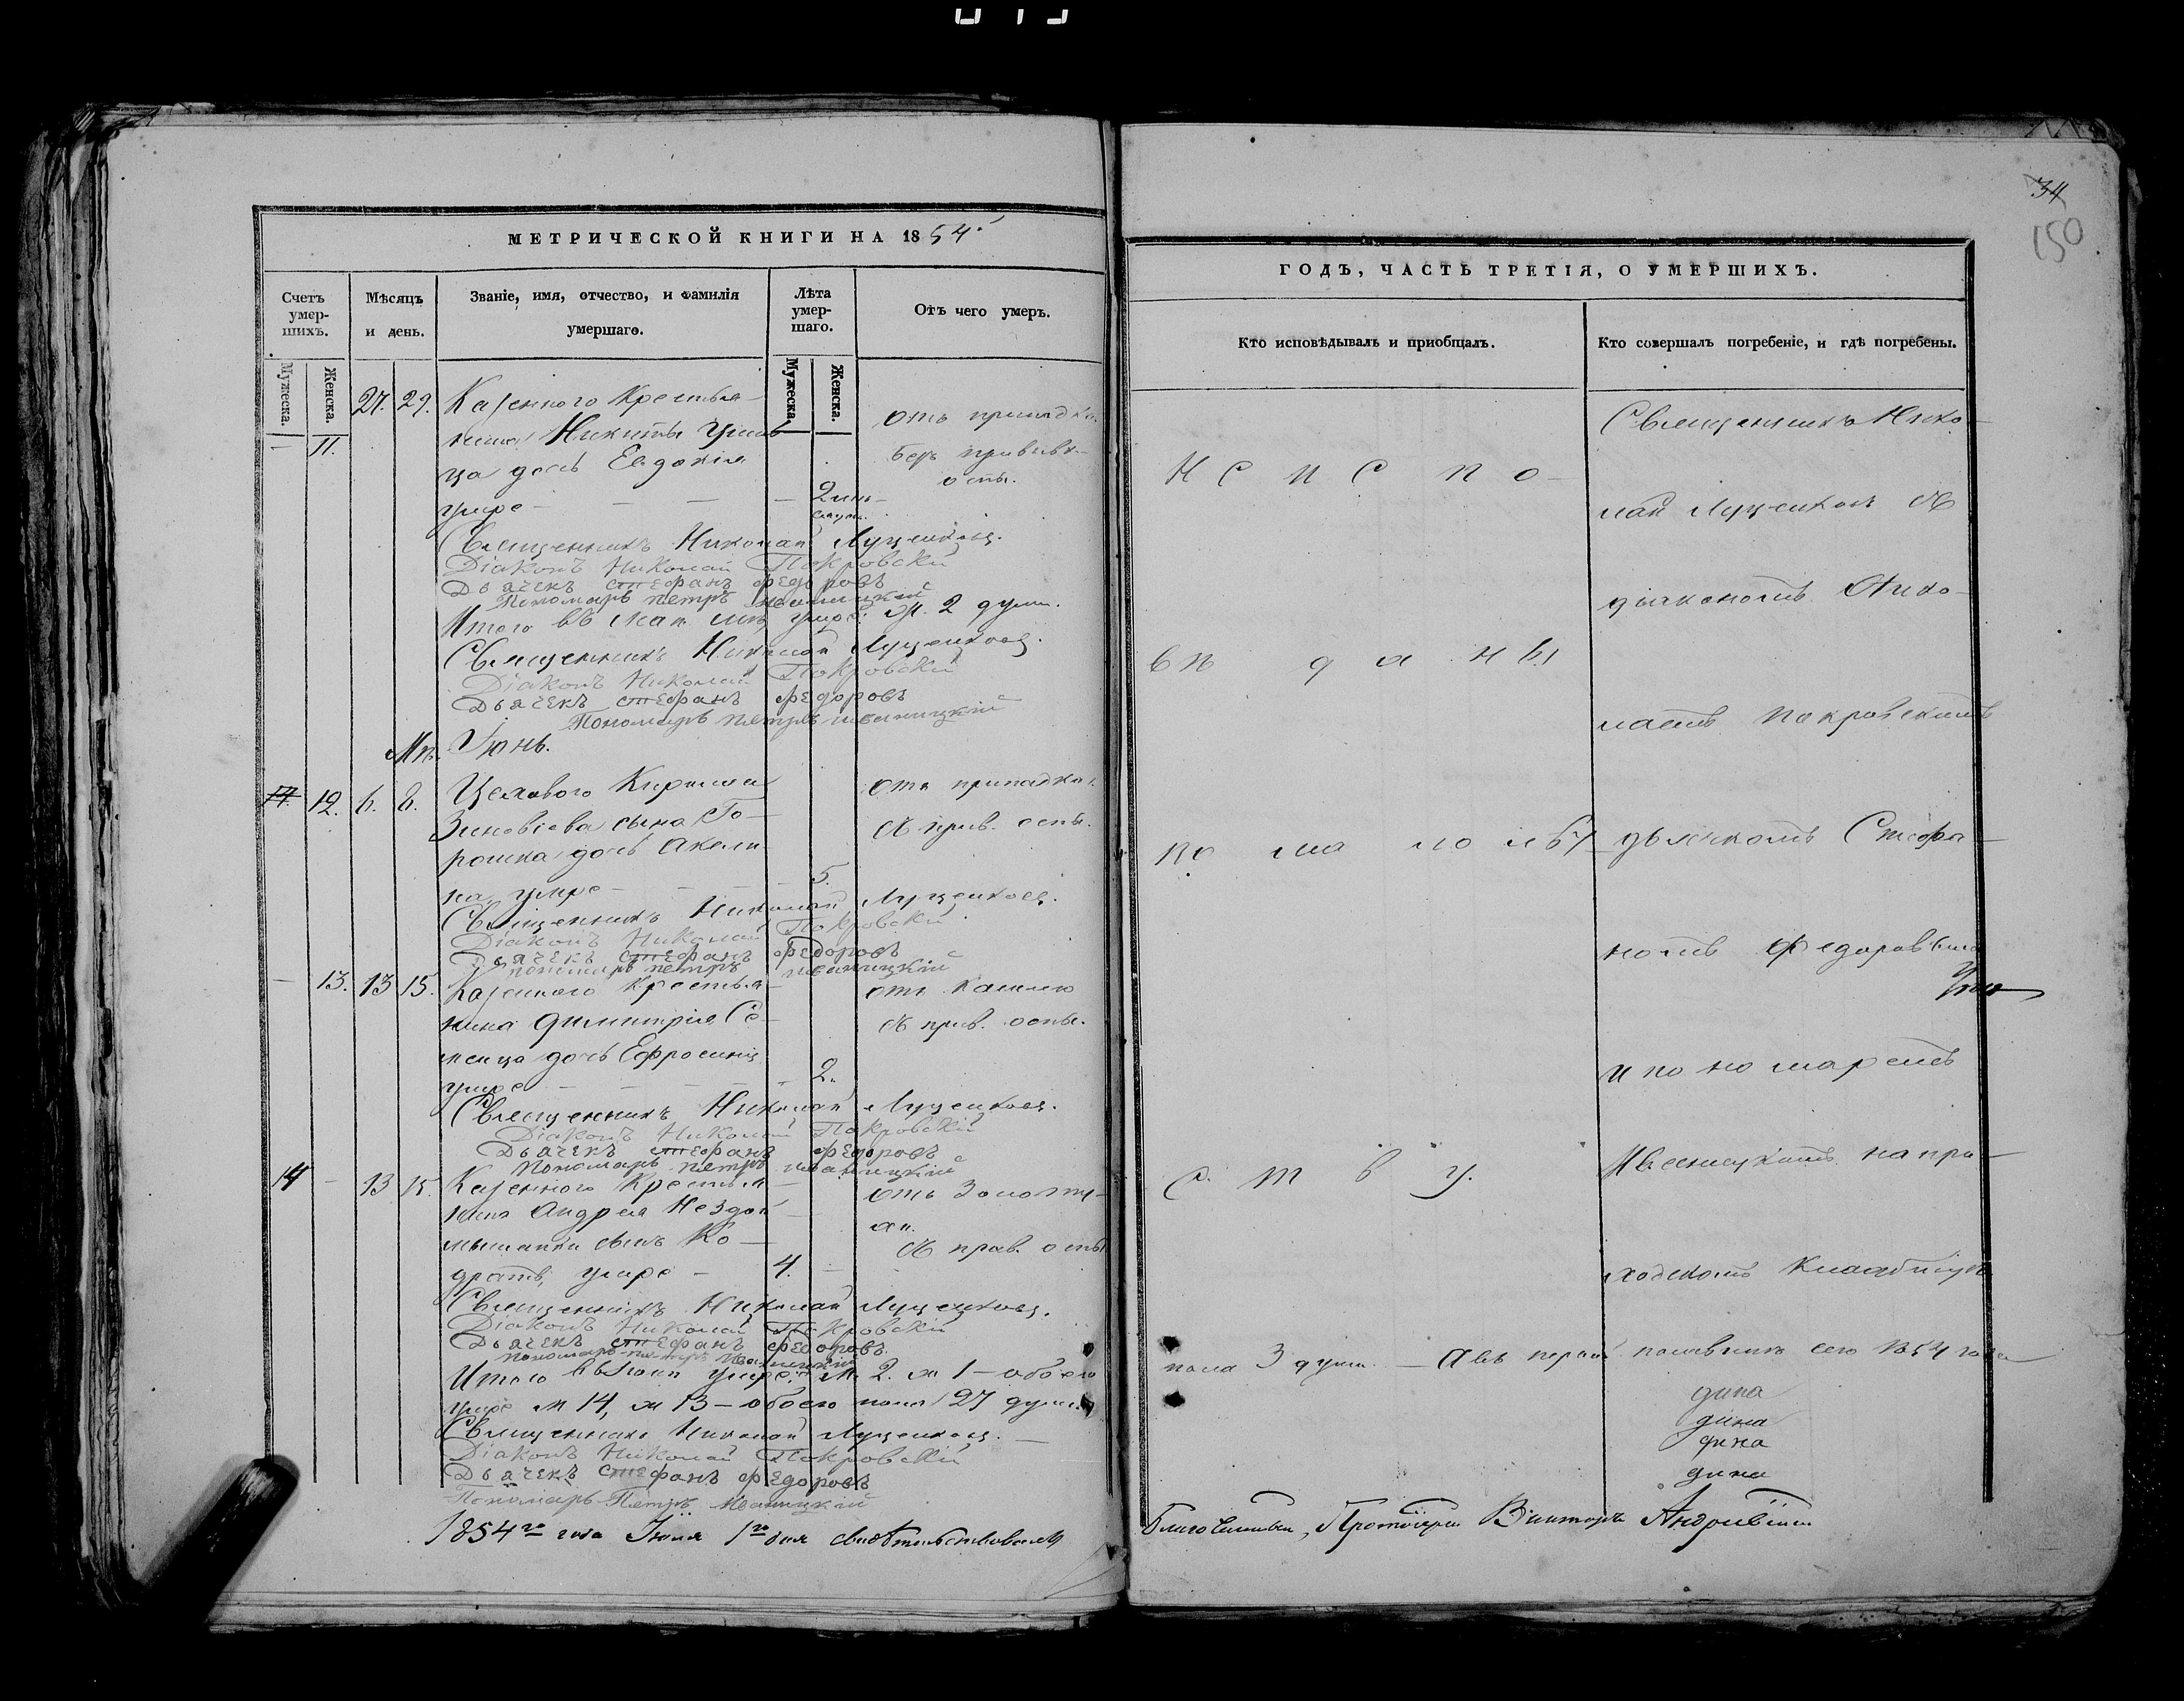 МЕТРИЧЕСКОЙ КНИГИ НА 1854
Счетъ умер-
шихъ.
Мѣсяцъ
и день.
Званіе, имя, отчество, и фамилія
умершаго.
Лѣта
умер-
шаго.
Отъ чего умеръ.
Мужеска.
Женска.
Мужеска.
Женска.
27. 29. Казенного Крестья-
нина Никиты
— 11.
ца дочь Евдокія
умре — — — 2
отъ припадка.
безъ прививк-
оспы.
Священникъ Николай Луценковъ.
Діаконъ Николай Покровскій
Дьячекъ Стефанъ Федоровъ
Пономарь Петръ Иваницкій
Итого въ Маи умре 2 душ.
Священникъ Николай Луценковъ.
Діаконъ Николай Покровскій
Дьячекъ Стефанъ Федоровъ
Пономарь Петръ Иваницкій
Іюнь.
12. 6. 8. Цехового Кирилла
Зиновіева сына Го-
рошка дочь Акели-
на умре — — — 5.
отъ припадка.
съ прив. оспы.
Священникъ Николай Луценковъ.
Діаконъ Николай Покровскій
Дьячекъ Стефанъ Федоровъ
Пономарь Петръ Иваницкій
— 13. 13 15. Казенного Крестья-
нина Димитрія Се-
менца дочь Ефросинія
умре — — — 2.
отъ кашлю
съ прив. оспы.
Священникъ Николай Луценковъ.
Діаконъ Николай Покровскій
Дьячекъ Стефанъ Федоровъ
Пономарь Петръ Иваницкій
14 — 13 15. Казенного Крестья-
нина Андрея Нездой-
минапки сынъ Ко-
дратъ, умре — 4.
отъ Золоту-
хи.
съ прив. оспы
Священникъ Николай Луценковъ.
Діаконъ Николай Покровскій
Дьячекъ Стефанъ Федоровъ.
Пономарь Петръ Иваницкій
Итого въ умре: М. 2. ж 1 — обоего
умре м 14, ж 13 — обоего пола 27 душъ
Священникъ Николай Луценковъ. —
Діаконъ Николай Покровскій
Дьячекъ Стефанъ Федоровъ
Пономарь Петръ Иваницкій
1854го года Іюля 1го дня свидѣтельствовалъ
34
150
ГОДЪ, ЧАСТЬ ТРЕТІЯ, О УМЕРШИХЪ.
Кто исповѣдывалъ и пріобщалъ.
Кто совершалъ погребеніе, и гдѣ погребены.
Не испо-
веданы
по малолѣт
ству.
Священникъ Нико-
лай Луценковъ съ
діакономъ Нико-
лаемъ Покровскимъ
дьячкомъ Стефа-
номъ Федоровымъ
и пономаремъ
Иваницкимъ на при-
ходскомъ Кладбищѣ
пола 3 душ. — А въ первой половинѣ сего 1854 года
дина
дина
дина
дина
Благочинный, Протоіерей Викторъ